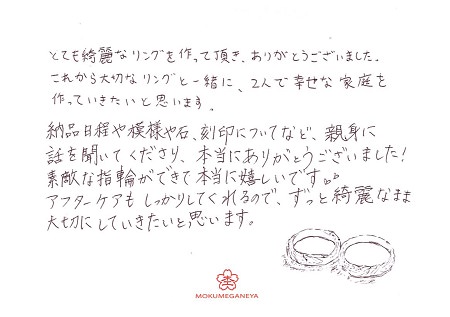 とても綺麗なリングを作って頂き、ありがとうございました。
これから大切なリングと一緒に、2人で幸せな家庭を
作っていきたいと思います。
納品日程や模様や石、刻印についてなど、親身に
話を聞いてくださり、本当にありがとうございました!
素敵な指輪ができて本当に嬉しいです。
アフターケアもしっかりしてくれるので、ずっと綺麗なまま
大切にしていきたいと思います。
MOKUMEGANEYA